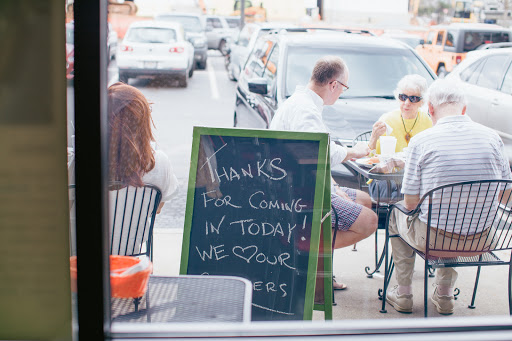 THANKS
FOR COMING
IN TODAY!
WE ♡ OUR